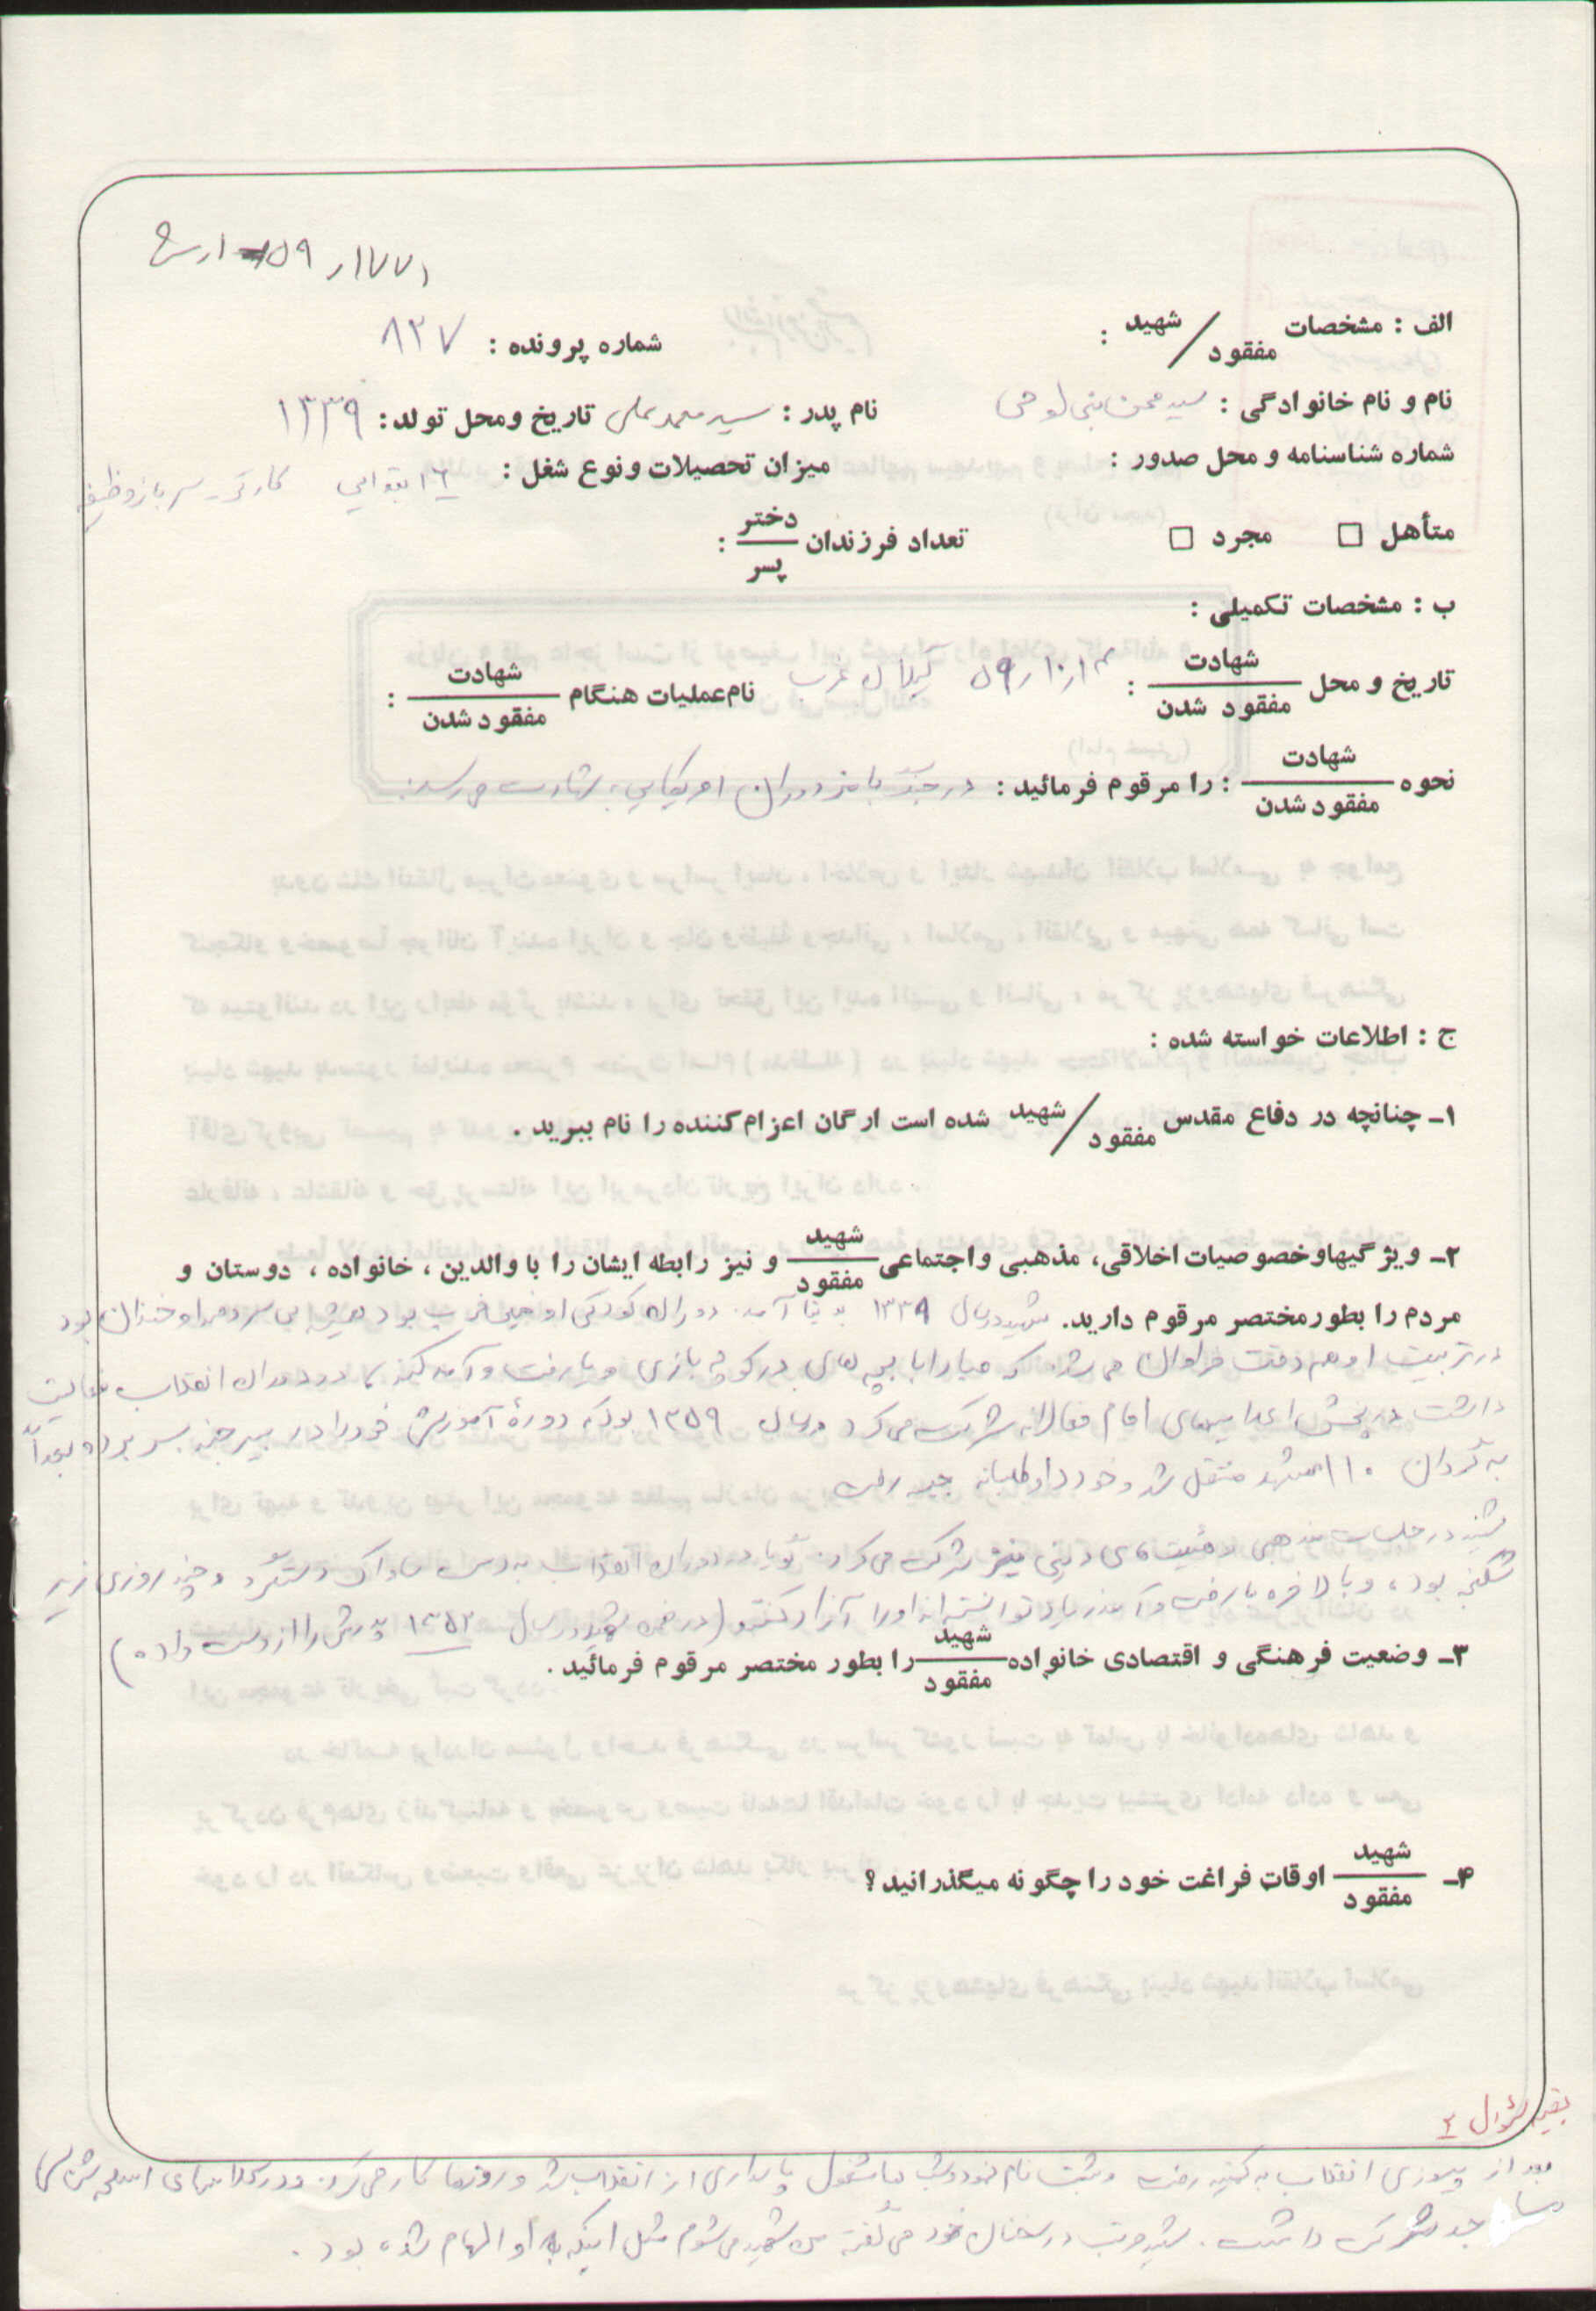 ۱۷۷۱ر ۵۹
الف : مشخصات شهید / مفقود :
شماره پرونده : ۸۳۷
نام و نام خانوادگی : سید محسن بنی لوحی نام پدر : سید محمد علی تاریخ و محل تولد : ۱۳۳۹
شماره شناسنامه و محل صدور : میزان تحصیلات و نوع شغل : ۶ ابتدایی کارگر - سرباز وظیفه
متأهل □ مجرد □ تعداد فرزندان دختر / پسر :
ب : مشخصات تکمیلی :
تاریخ و محل شهادت / مفقود شدن : ۵۹ر۱۰ر۱۳ گیلان غرب نام عملیات هنگام شهادت / مفقود شدن :
نحوه شهادت / مفقود شدن : را مرقوم فرمائید : در جنگ با مزدوران امریکایی به شهادت می رسد.
ج : اطلاعات خواسته شده :
۱ـ چنانچه در دفاع مقدس شهید / مفقود شده است ارگان اعزام کننده را نام ببرید .
۲ـ ویژگیها و خصوصیات اخلاقی، مذهبی و اجتماعی شهید / مفقود و نیز رابطه ایشان را با والدین ، خانواده ، دوستان و
مردم را بطور مختصر مرقوم دارید. شهید در سال ۱۳۳۹ بدنیا آمد. دوران کودکی او خیلی خوب بود همیشه بی سر و صدا و خندان بود
در تربیت او هم دقت فراوان می شد که مبادا با بچه های در کوچه بازی و یا رفت و آمد کند. در دوران انقلاب فعالیت
داشت در پخش اعلامیه های امام فعالانه شرکت می کرد در سال ۱۳۵۹ بود که دورهٔ آموزش خود را در بیرجند بسر برد و بعداً
به گردان ۱۱۰ مشهد منتقل شد و خود داوطلبانه جبهه رفت
شهید در جلسات مذهبی و هیئت های دینی نیز شرکت می کرد. گویا در دوران انقلاب بدست ساواک دستگیر و چند روزی زیر
شکنجه بود، و بالاخره با رفت و آمد زیاد توانسته اند او را آزاد کنند (در ضمن شهید در سال ۱۳۵۳ پدرش را از دست داده)
۳ـ وضعیت فرهنگی و اقتصادی خانواده شهید / مفقود را بطور مختصر مرقوم فرمائید .
۴ـ شهید / مفقود اوقات فراغت خود را چگونه میگذرانید ؟
بقیه سئوال ۲
بعد از پیروزی انقلاب به کمیته رفت و ثبت نام نمود و شبها مشغول پاسداری از انقلاب شد و روزها کار می کرد. و در کلاسهای اسلحه شناسی
مساجد شرکت داشت. شهید مرتب در سخنان خود می گفت من شهید می شوم مثل اینکه به او الهام شده بود.